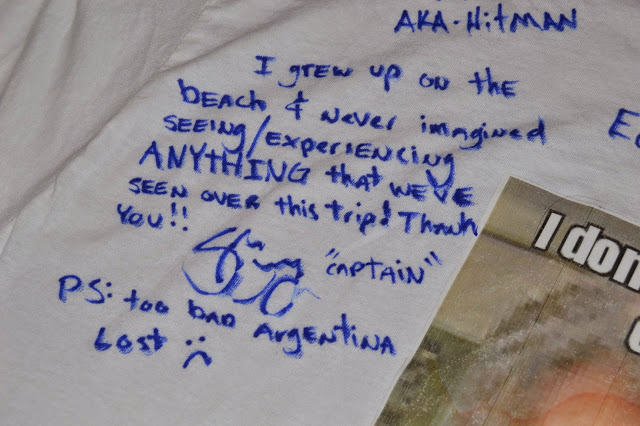 AKA-HitMAN
I grew up on the
bEACH & Never imagined
SEEING/EXPERIENCING
ANYTHING that WE'VE
SEEN OVER this trip! Thank
You!!
"CAPTAIN"
PS: too bad Argentina
Lost :(
I don